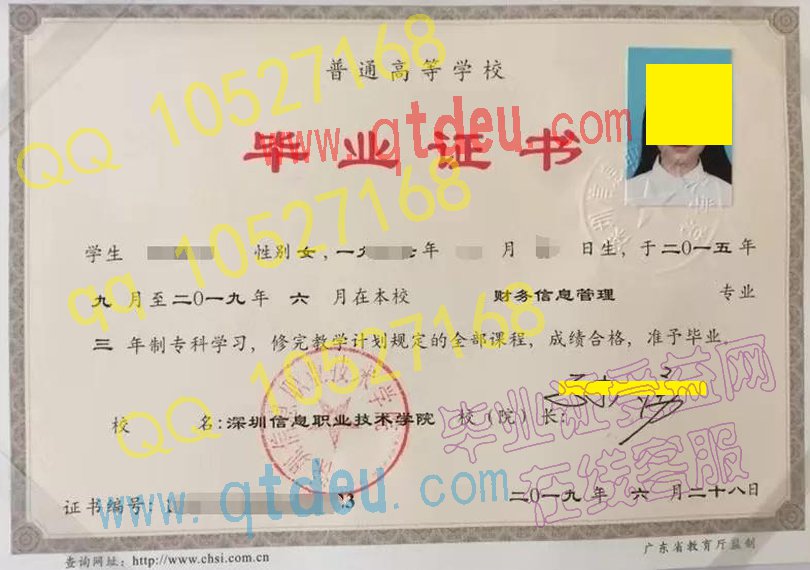 普通高等学校
毕业证书
学生 性别 女，一九 七年 月 日生，于二〇一五年
九 月至二〇一九年 六 月在本校 财务信息管理 专业
三 年制专科学习，修完教学计划规定的全部课程，成绩合格，准予毕业。
校 名：深圳信息职业技术学院 校（院）长：
证书编号： 二〇一九年 六 月二十八日
查询网址：http://www.chsi.com.cn 广东省教育厅监制
QQ 10527168
www.qtdeu.com
qq 10527168
QQ 10527168
www.qtdeu.com
毕业证受益网
在线客服